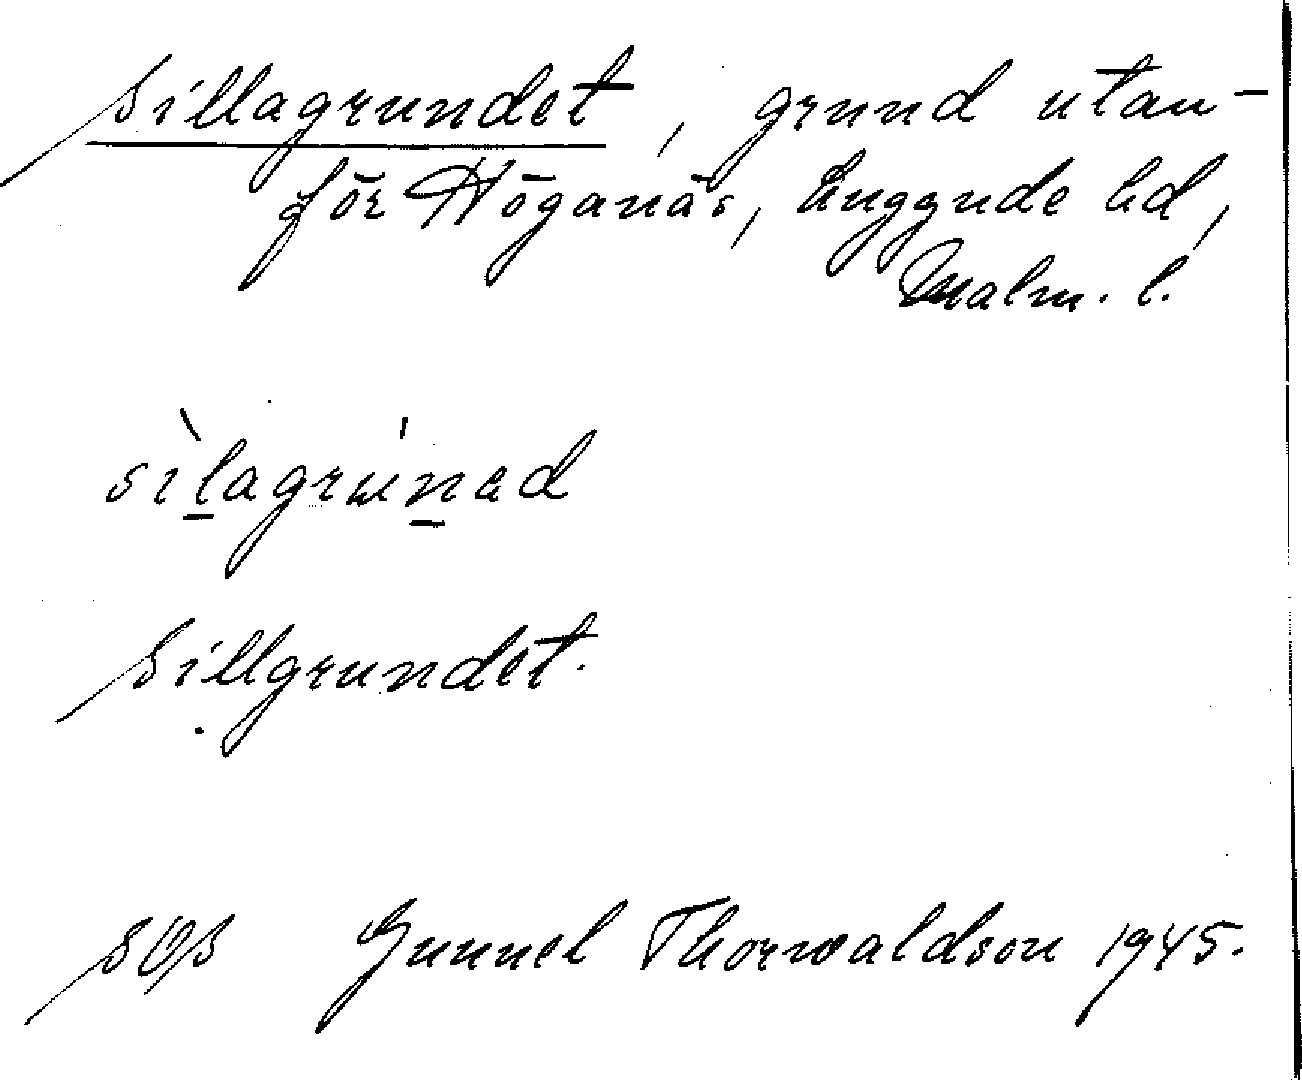 Sillagrundet, grund utan-
för Höganäs, Luggude hd,
Malm. l.
sìlagrúnad
Sillgrundet.
Gunnel Thorwaldson 1945.